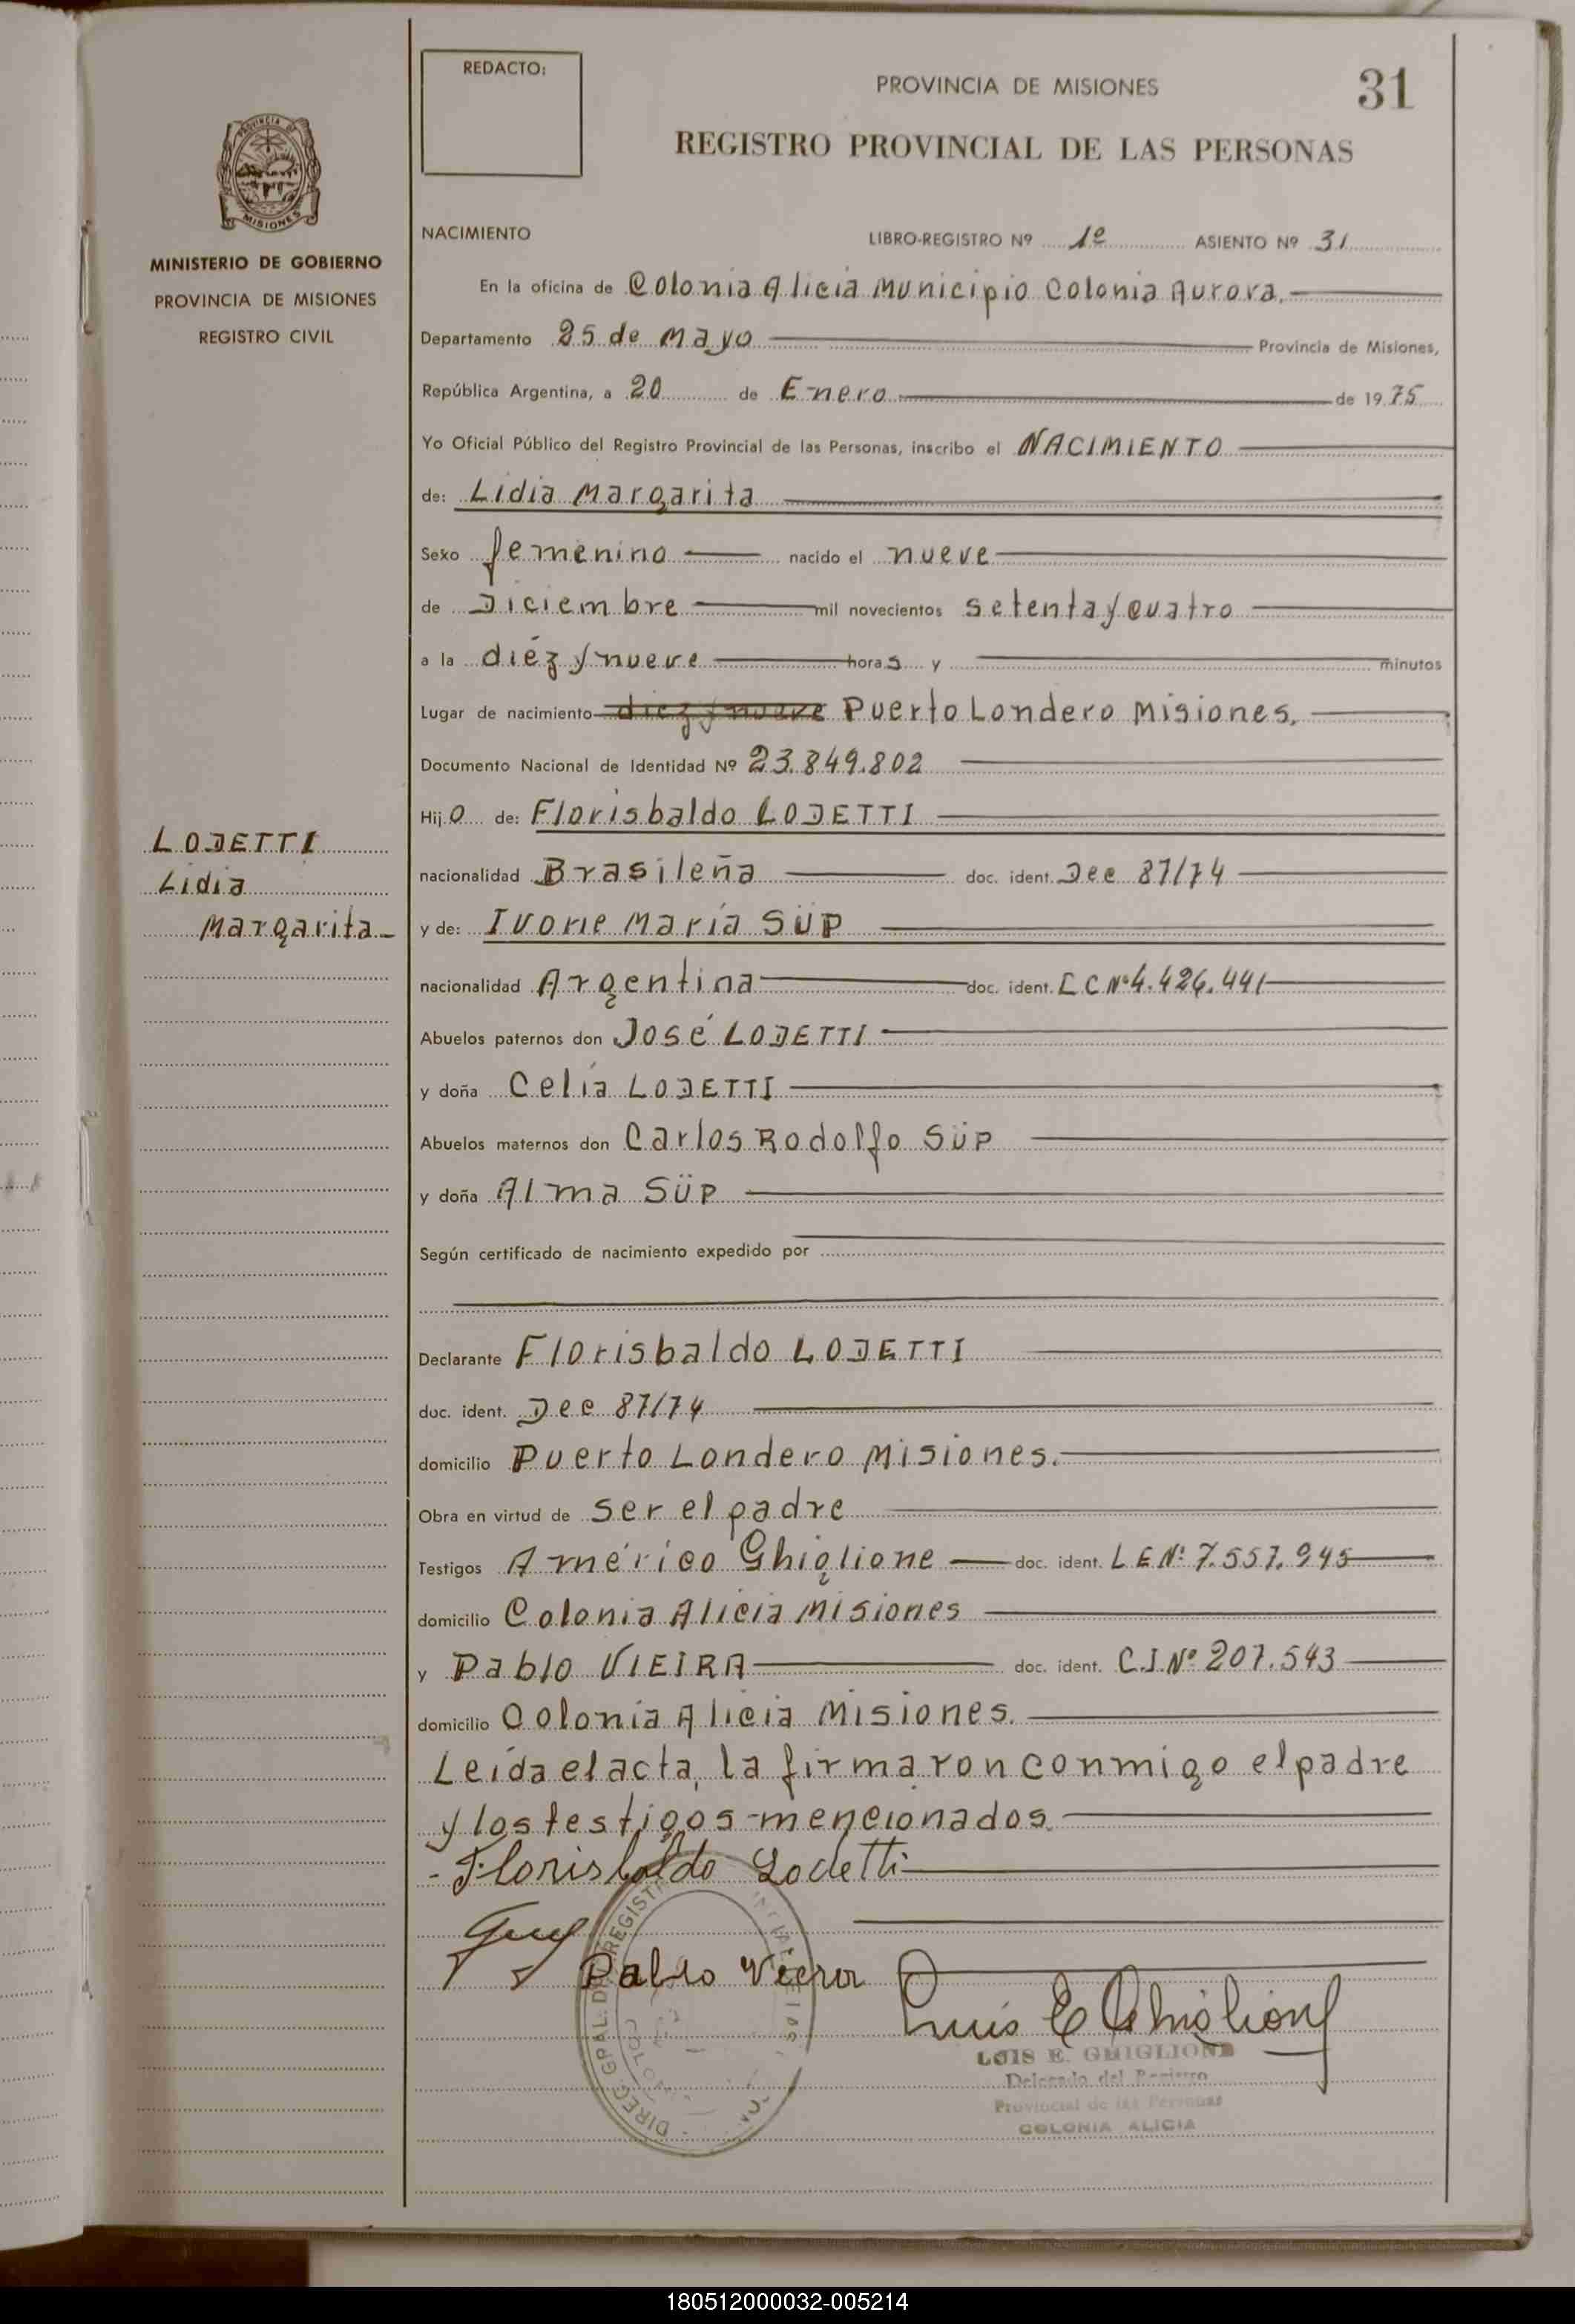 REDACTO:
PROVINCIA DE MISIONES
31
REGISTRO PROVINCIAL DE LAS PERSONAS
PROVINCIA DE
MISIONES
MINISTERIO DE GOBIERNO
PROVINCIA DE MISIONES
REGISTRO CIVIL
LODETTI
Lidia
Margarita
NACIMIENTO
LIBRO-REGISTRO Nº 1º ASIENTO Nº 31
En la oficina de Colonia Alicia Municipio Colonia Aurora.
Departamento 25 de Mayo Provincia de Misiones,
República Argentina, a 20 de Enero de 1975
Yo Oficial Público del Registro Provincial de las Personas, inscribo el NACIMIENTO
de: Lidia Margarita
Sexo femenino nacido el nueve
de Diciembre mil novecientos setenta y cuatro
a la diéz y nueve horas y minutos
Lugar de nacimiento diez y nueve Puerto Londero Misiones.
Documento Nacional de Identidad Nº 23.849.802
Hijo de: Florisbaldo LODETTI
nacionalidad Brasileña doc. ident. Dec 87/74
y de: Ivone María SÜP
nacionalidad Argentina doc. ident. LC Nº 4.426.441
Abuelos paternos don José LODETTI
y doña Celia LODETTI
Abuelos maternos don Carlos Rodolfo SÜP
y doña Alma SÜP
Según certificado de nacimiento expedido por
Declarante Florisbaldo LODETTI
doc. ident. Dec 87/74
domicilio Puerto Londero Misiones.
Obra en virtud de ser el padre
Testigos Américo Ghiglione doc. ident. LE Nº 7.557.945
domicilio Colonia Alicia Misiones
y Pablo VIEIRA doc. ident. C.I. Nº 207.543
domicilio Colonia Alicia Misiones.
Leída el acta, la firmaron conmigo el padre
y los testigos mencionados.
Florisbaldo Lodetti
Pablo Vieira
Luis E Ghiglione
LUIS E. GHIGLIONE
Delegado del Registro
Provincial de las Personas
COLONIA ALICIA
DIREC. GRAL. DEL REGISTR
180512000032-005214